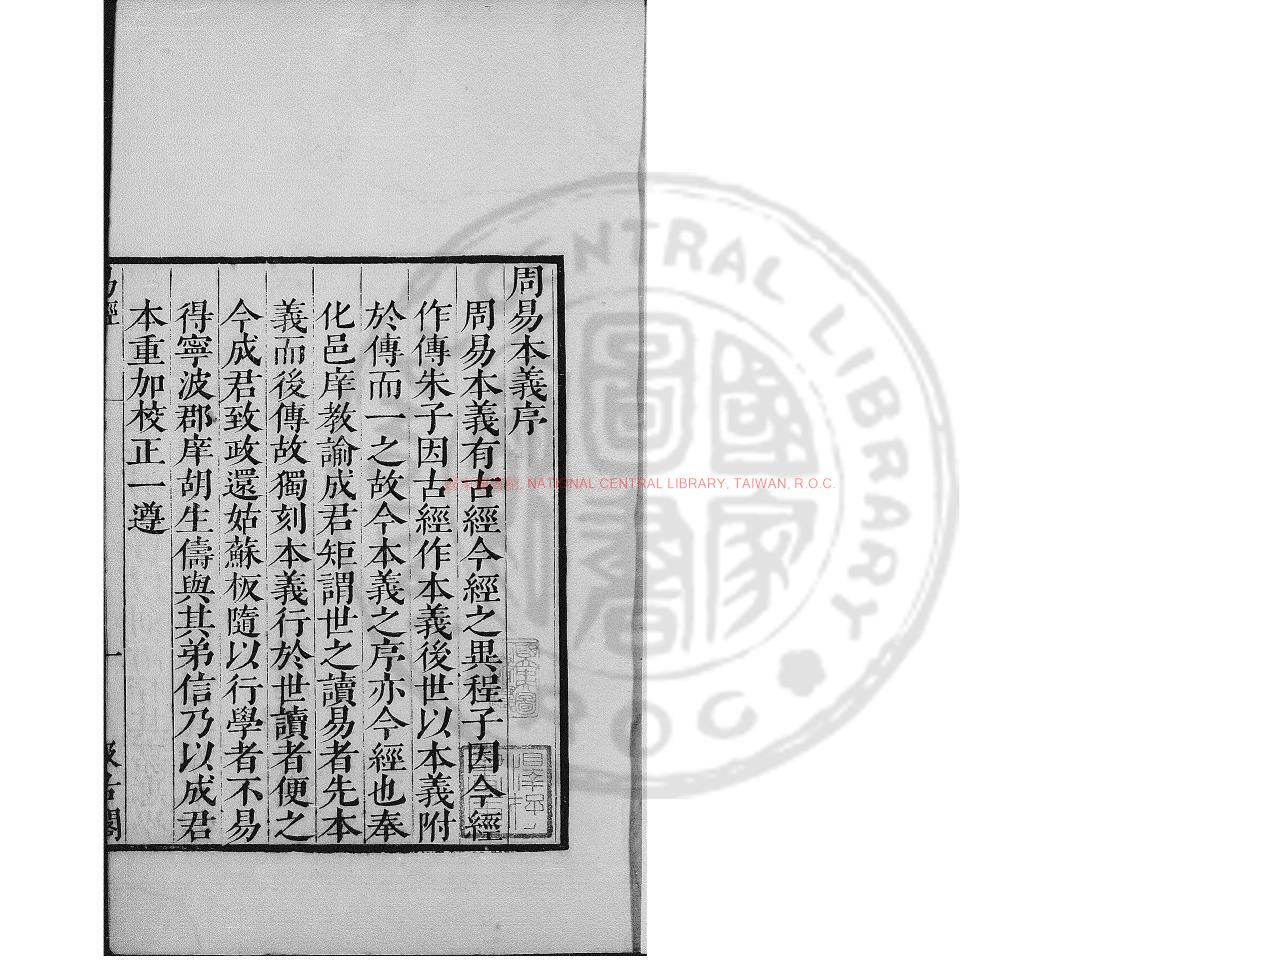 周易本義序
周易本義有古經今經之異程子因今經
作傳朱子因古經作本義後世以本義附
於傳而一之故今本義之序亦今經也奉
化邑庠教諭成君矩謂世之讀易者先本
義而後傳故獨刻本義行於世讀者便之
今成君致政還姑蘇板隨以行學者不易
得寧波郡庠胡生儔與其弟信乃以成君
本重加校正一遵
易經
一
汲古閣
國家圖書館
CENTRAL LIBRARY
R O C
NATIONAL CENTRAL LIBRARY, TAIWAN, R.O.C.